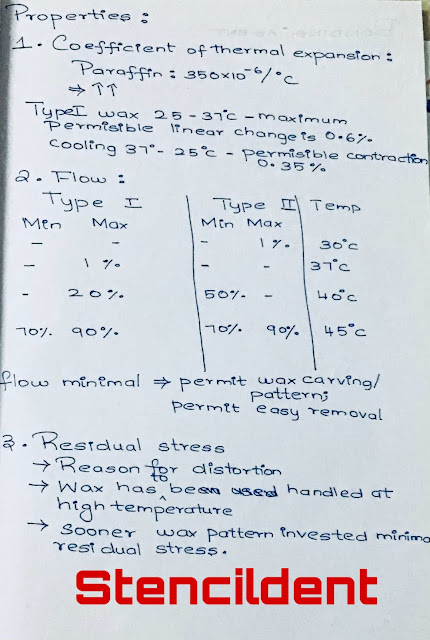 Properties :
1. Coefficient of thermal expansion :
Paraffin : 350x10⁻⁶/°c
⇒ ↑↑
Type I wax 25-37°c - maximum
Permisible linear change is 0.6%
Cooling 37°- 25°c - permisible contraction
0.35%
2. Flow :
Type I Type II Temp
Min Max Min Max
- - - 1% 30°c
- 1% - - 37°c
- 20% 50% - 40°c
70% 90% 70% 90% 45°c
flow minimal ⇒ permit wax carving/
pattern;
permit easy removal
3. Residual stress
→ Reason for distortion
→ Wax has to be handled at
high temperature
→ Sooner wax pattern invested minima
residual stress.
Stencildent